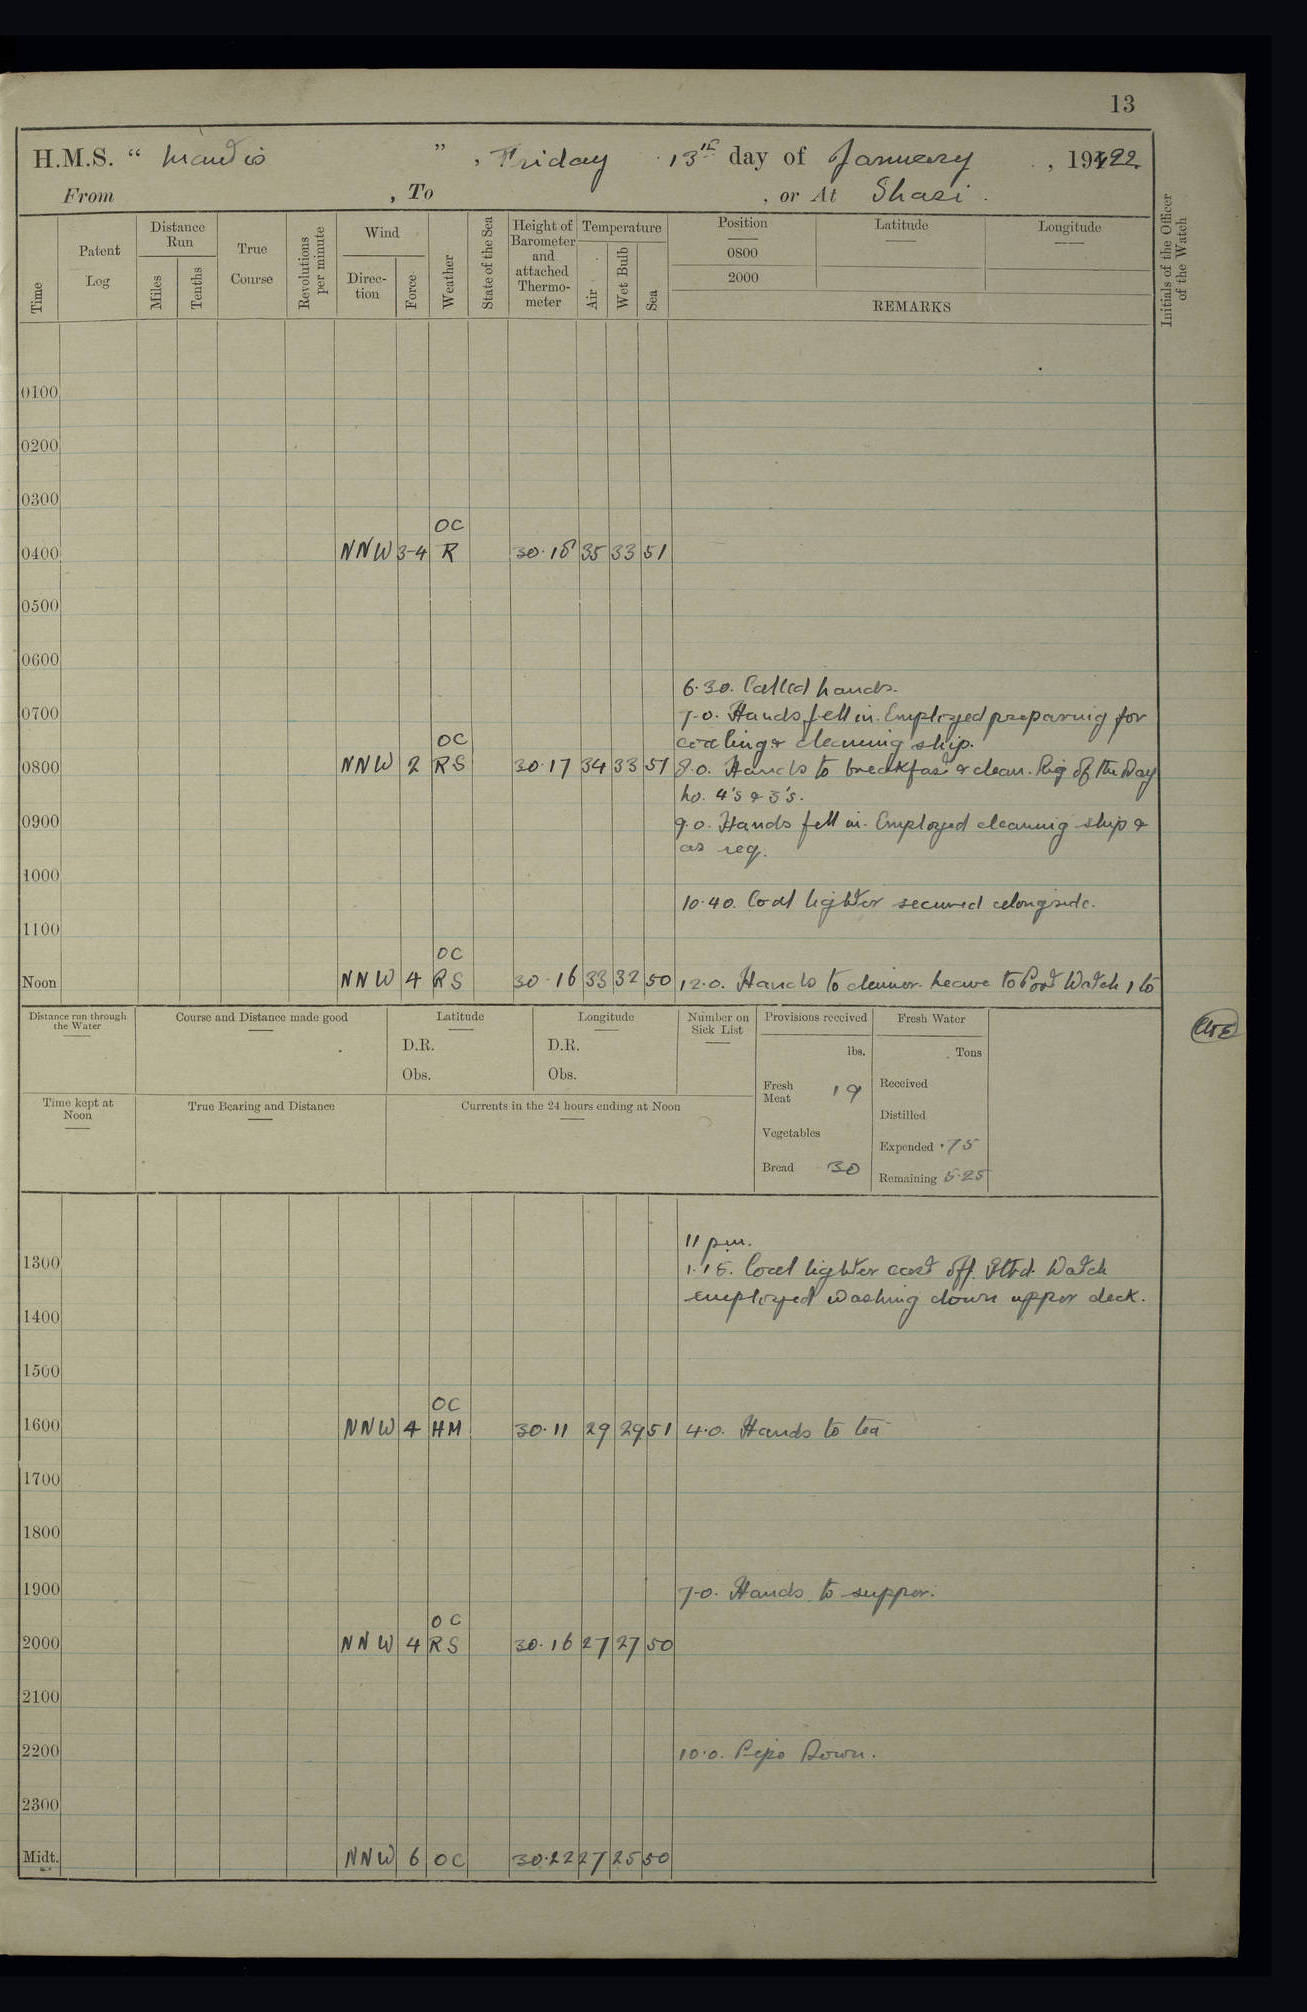 13
H.M.S. " Mantis ", Friday 13th day of January, 1922
From , To , or At Shasi.
Time
Patent Log
Distance Run
Miles
Tenths
True Course
Revolutions per minute
Wind
Direction
Force
Weather
State of the Sea
Height of Barometer and attached Thermometer
Temperature
Air
Wet Bulb
Sea
Position
0800
2000
Latitude
Longitude
REMARKS
Initials of the Officer of the Watch
0100
0200
0300
OC
0400 NNW 3-4 R 30.18 35 33 51
0500
0600
6.30. Called hands.
0700 7.0. Hands fell in. Employed preparing for
coaling & cleaning ship.
OC
0800 NNW 2 RS 30.17 34 33 51 8.0. Hands to breakfast & clean. Rig of the Day
No. 4's & 3's.
0900 9.0. Hands fell in. Employed cleaning ship &
as req.
1000
10.40. Coal lighter secured alongside.
1100
OC
Noon NNW 4 RS 30.16 33 32 50 12.0. Hands to dinner. Leave to Port Watch 1 to
Distance run through the Water
Course and Distance made good
Latitude
D.R.
Obs.
Longitude
D.R.
Obs.
Number on Sick List
Provisions received
lbs.
Fresh Meat 19
Vegetables
Bread 30
Fresh Water
Tons
Received
Distilled
Expended .75
Remaining 5.25
Time kept at Noon
True Bearing and Distance
Currents in the 24 hours ending at Noon
11 pm.
1300 1.15. Coal lighter cast off. Stbd. Watch
employed washing down upper deck.
1400
1500
OC
1600 NNW 4 HM 30.11 29 29 51 4.0. Hands to tea
1700
1800
1900 7.0. Hands to supper.
OC
2000 NNW 4 RS 30.16 27 27 50
2100
2200 10.0. Pipe Down.
2300
Midt. NNW 6 OC 30.22 27 25 50